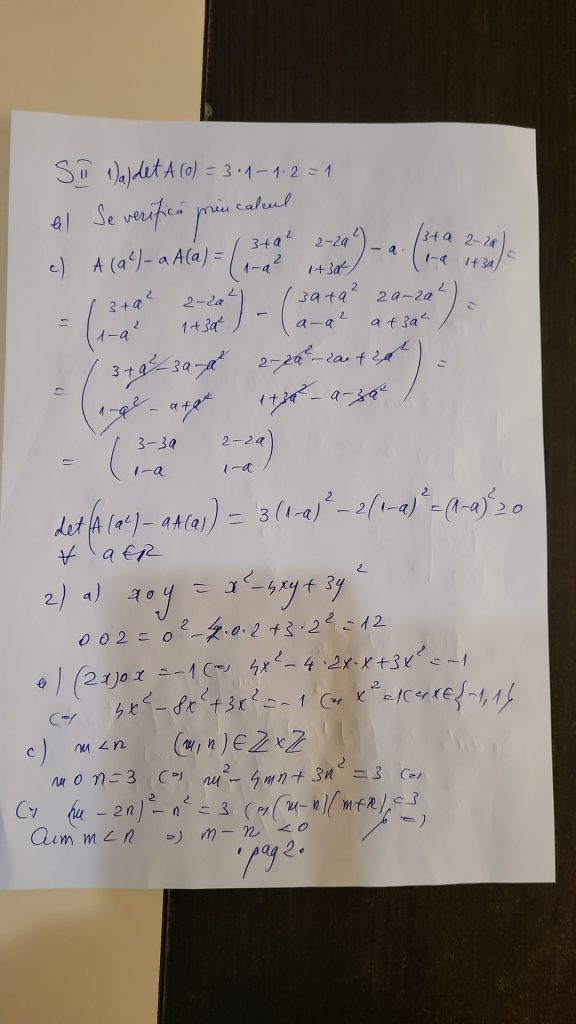 S II 1) a) det A(0) = 3·1 – 1·2 = 1
b) Se verifică prin calcul
c) A(a²) – a A(a) = ( 3+a² 2–2a² ) – a · ( 3+a 2–2a ) =
( 1–a² 1+3a² ) ( 1–a 1+3a )
= ( 3+a² 2–2a² ) – ( 3a+a² 2a–2a² ) =
( 1–a² 1+3a² ) ( a–a² a+3a² )
= ( 3+a²–3a–a² 2–2a²–2a+2a² ) =
( 1–a²–a+a² 1+3a²–a–3a² )
= ( 3–3a 2–2a )
( 1–a 1–a )
det(A(a²) – aA(a)) = 3(1–a)² – 2(1–a)² = (1–a)² ≥ 0
∀ a ∈ R
2) a) x o y = x² – 4xy + 3y²
0 o 2 = 0² – 4·0·2 + 3·2² = 12
b) (2x) o x = –1 ⇔ 4x² – 4·2x·x + 3x² = –1
⇔ 4x² – 8x² + 3x² = –1 ⇔ x² = 1 ⇔ x ∈ {–1, 1}
c) m < n (m, n) ∈ Z × Z
m o n = 3 ⇔ m² – 4mn + 3n² = 3 ⇔
⇔ (m – 2n)² – n² = 3 ⇔ (m–n)(m+n) = 3
Cum m < n ⇒ m – n < 0 } ⇒
· pag 2 ·